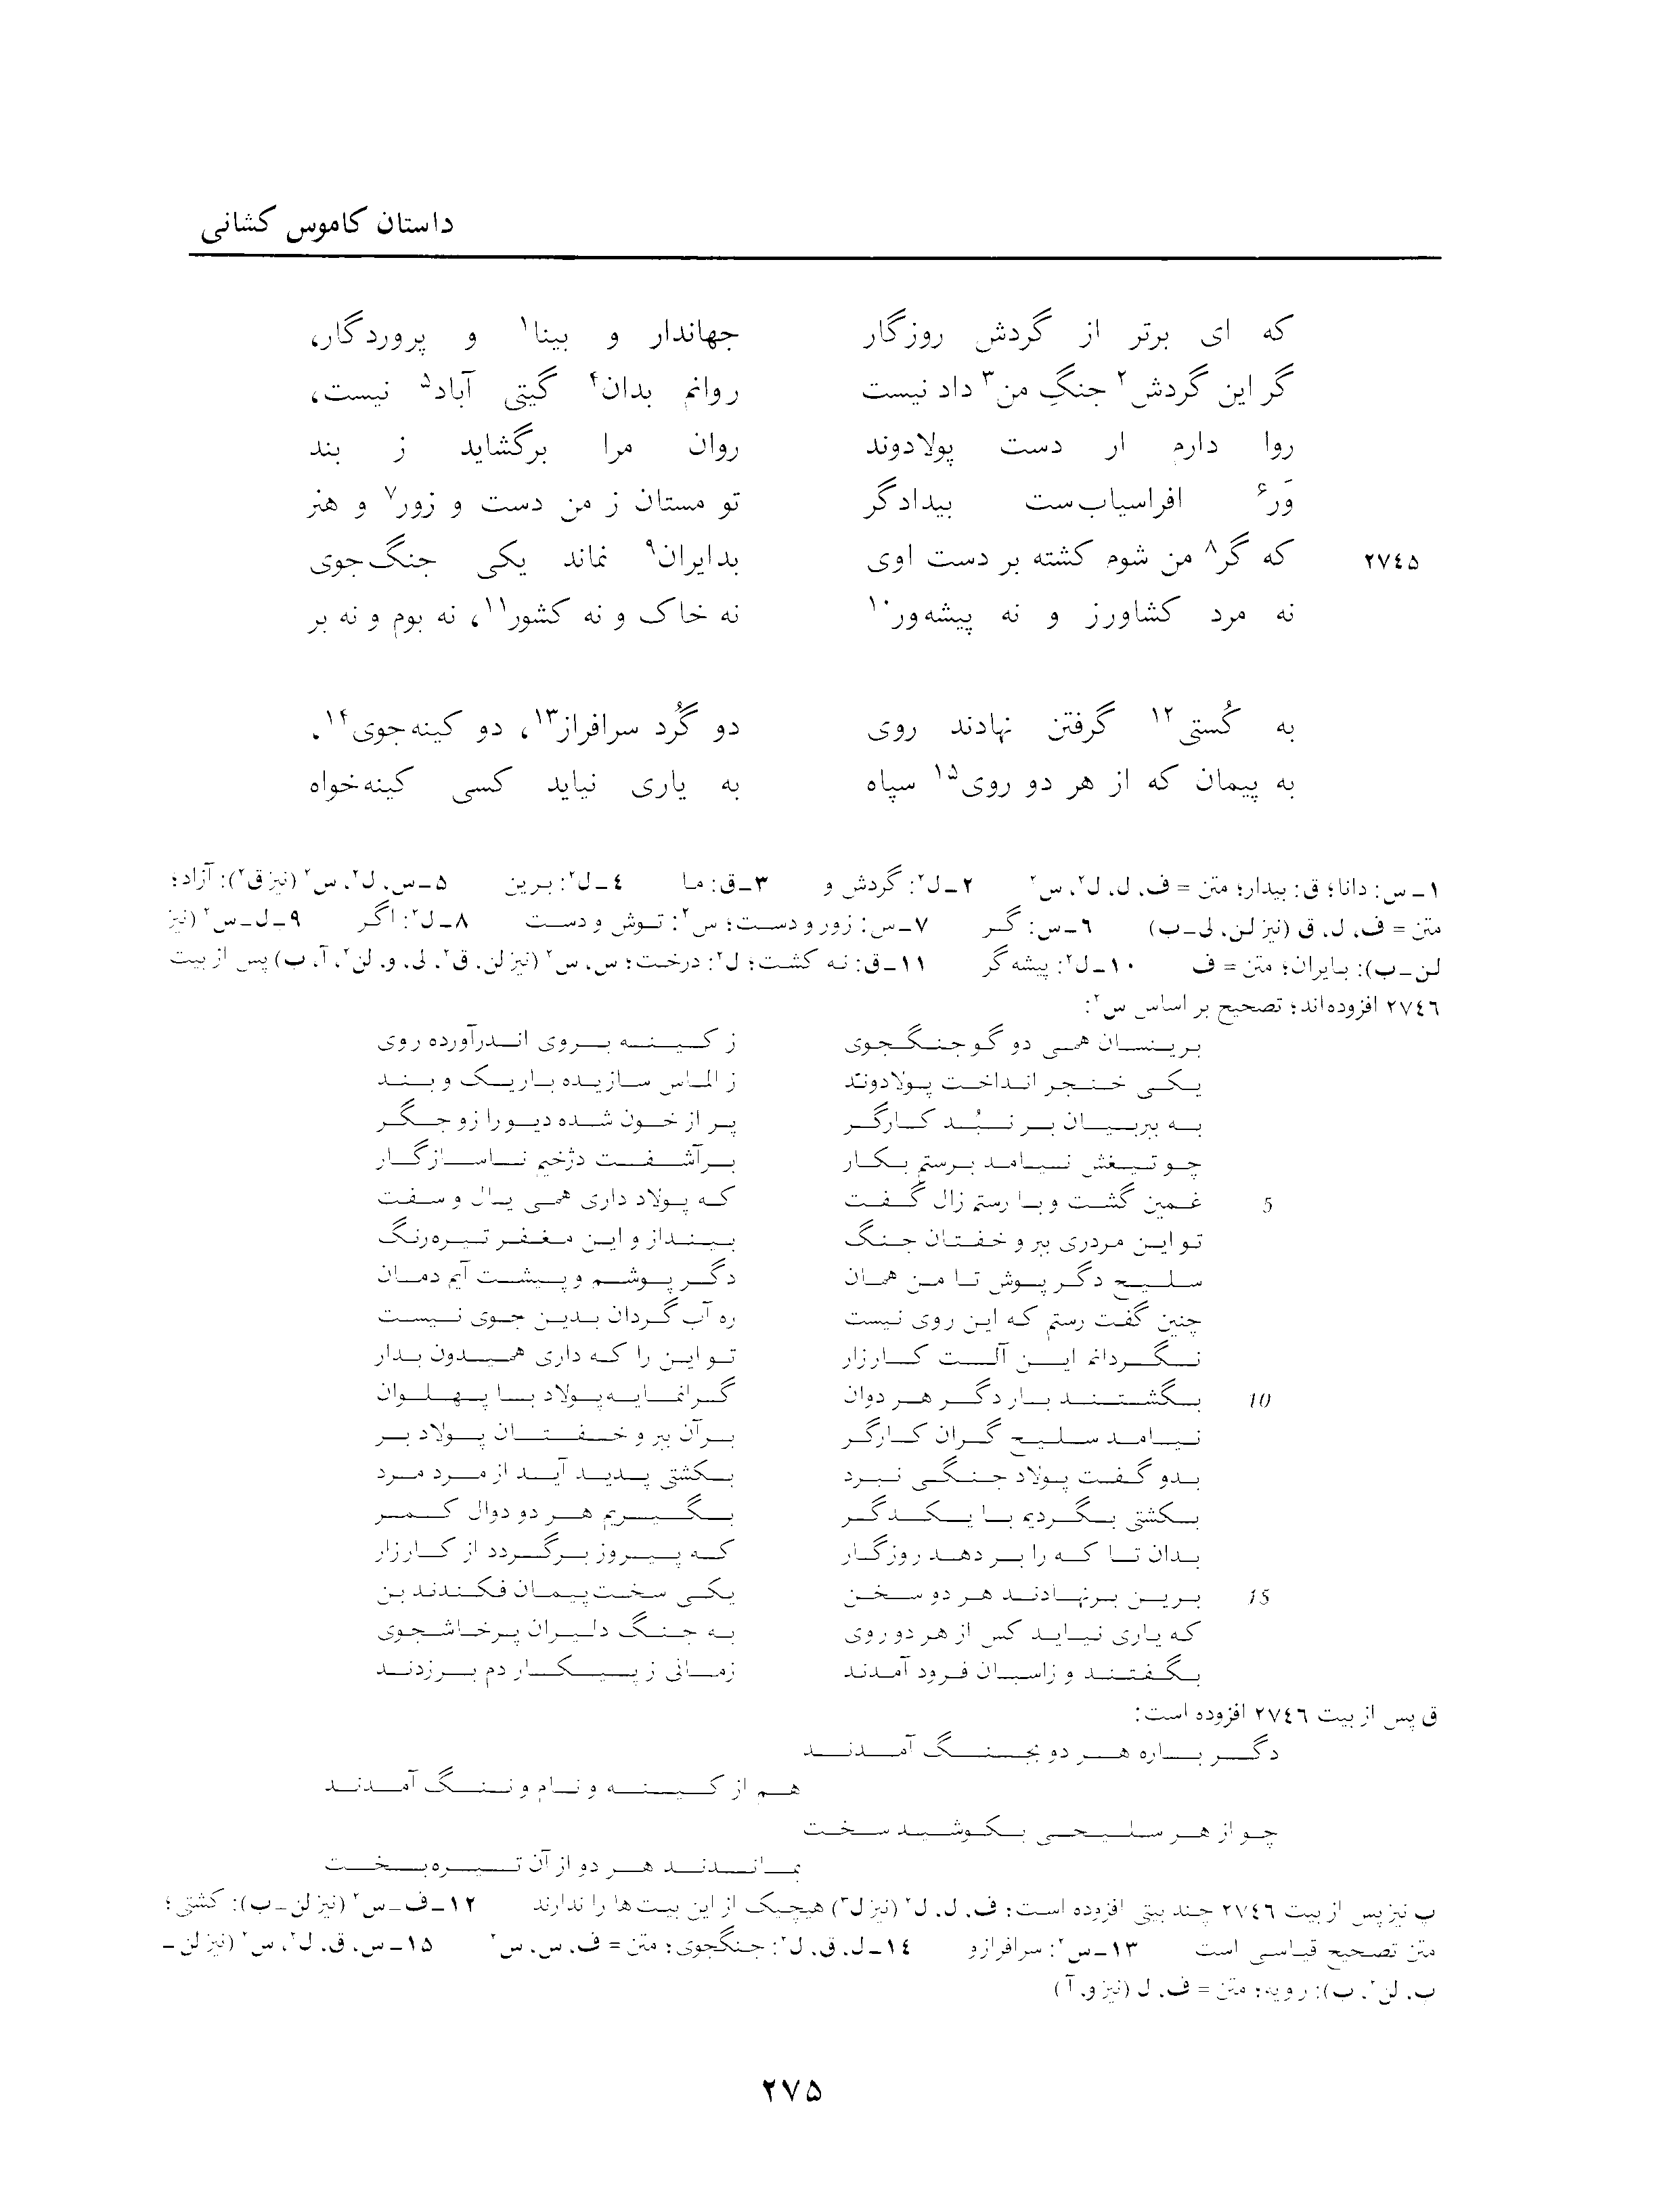 داستان کاموس کشانی
که ای برتر از گردش روزگار جهاندار و بینا۱ و پروردگار،
گر این گردش۲ جنگِ من۳ داد نیست روانم بدان۴ گیتی آباد۵ نیست،
روا دارم ار دست پولادوند روان مرا برگشاید ز بند
وَر۶ افراسیاب‌ست بیدادگر تو مستان ز من دست و زور۷ و هنر
۲۷۴۵ که گر۸ من شوم کشته بر دست اوی بدایران۹ نماند یکی جنگ‌جوی
نه مرد کشاورز و نه پیشه‌ور۱۰ نه خاک و نه کشور۱۱، نه بوم و نه بر
به کُستی۱۲ گرفتن نهادند روی دو گُرد سرافراز۱۳، دو کینه‌جوی۱۴.
به پیمان که از هر دو روی۱۵ سپاه به یاری نیاید کسی کینه‌خواه
۱ـ س: دانا؛ ق: بیدار؛ متن = ف، ل، ل۲، س۲ ۲ـ ل۲: گردش و ۳ـ ق: ما ۴ـ ل۲: برین ۵ـ س، ل۲، س۲ (نیز ق۲): آزاد؛
متن = ف، ل، ق (نیز لن، لی ـ ب) ۶ـ س: گر ۷ـ س: زور و دست؛ س۲: توش و دست ۸ـ ل۲: اگر ۹ـ ل ـ س۲ (نیز
لن ـ ب): بایران؛ متن = ف ۱۰ـ ل۲: پیشه‌گر ۱۱ـ ق: نه کشت؛ ل۲: درخت؛ س، س۲ (نیز لن، ق۲، لی، و، لن۲، آ، ب) پس از بیت
۲۷۴۶ افزوده‌اند؛ تصحیح بر اساس س۲:
برینسان همی دو گو جنگجوی ز کینه بروی اندرآورده روی
یکی خنجر انداخت پولادوند ز الماس سازیده باریک و بند
به ببربیان بر نبُد کارگر پر از خون شده دیو را زو جگر
چو تیغش نیامد برستم بکار برآشفت دژخیم ناسازگار
5 غمین گشت و با رستم زال گفت که پولاد داری همی یال و سفت
تو این مردری ببر و خفتان جنگ بینداز و این مغفر تیره‌رنگ
سلیح دگر پوش تا من همان دگر پوشم و پیشت آیم دمان
چنین گفت رستم که این روی نیست ره آب گردان بدین جوی نیست
نگردانم این آلت کارزار تو این را که داری همیدون بدار
10 بگشتند بار دگر هر دوان گرانمایه پولاد با پهلوان
نیامد سلیح گران کارگر برآن ببر و خفتان پولاد بر
بدو گفت پولاد جنگی نبرد بکشتی پدید آید از مرد مرد
بکشتی بگردیم با یکدگر بگیریم هر دو دوال کمر
بدان تا که را بر دهد روزگار که پیروز برگردد از کارزار
15 برین برنهادند هر دو سخن یکی سخت پیمان فکندند بن
که یاری نیاید کس از هر دو روی به جنگ دلیران پرخاشجوی
بگفتند و زاسبان فرود آمدند زمانی ز پیکار دم برزدند
ق پس از بیت ۲۷۴۶ افزوده است:
دگر باره هر دو بجنگ آمدند
هم از کینه و نام و ننگ آمدند
چو از هر سلیحی بکوشید سخت
بماندند هر دو از آن تیره‌بخت
پ نیز پس از بیت ۲۷۴۶ چند بیتی افزوده است؛ ف، ل، ل۲ (نیز ل۳) هیچیک از این بیت‌ها را ندارند ۱۲ـ ف ـ س۲ (نیز لن ـ ب): کشتی؛
متن تصحیح قیاسی است ۱۳ـ س۲: سرافراز و ۱۴ـ ل، ق، ل۲: جنگجوی؛ متن = ف، س، س۲ ۱۵ـ س، ق، ل۲، س۲ (نیز لن ـ
پ، لن۲، ب): رویه؛ متن = ف، ل (نیز و، آ)
۲۷۵